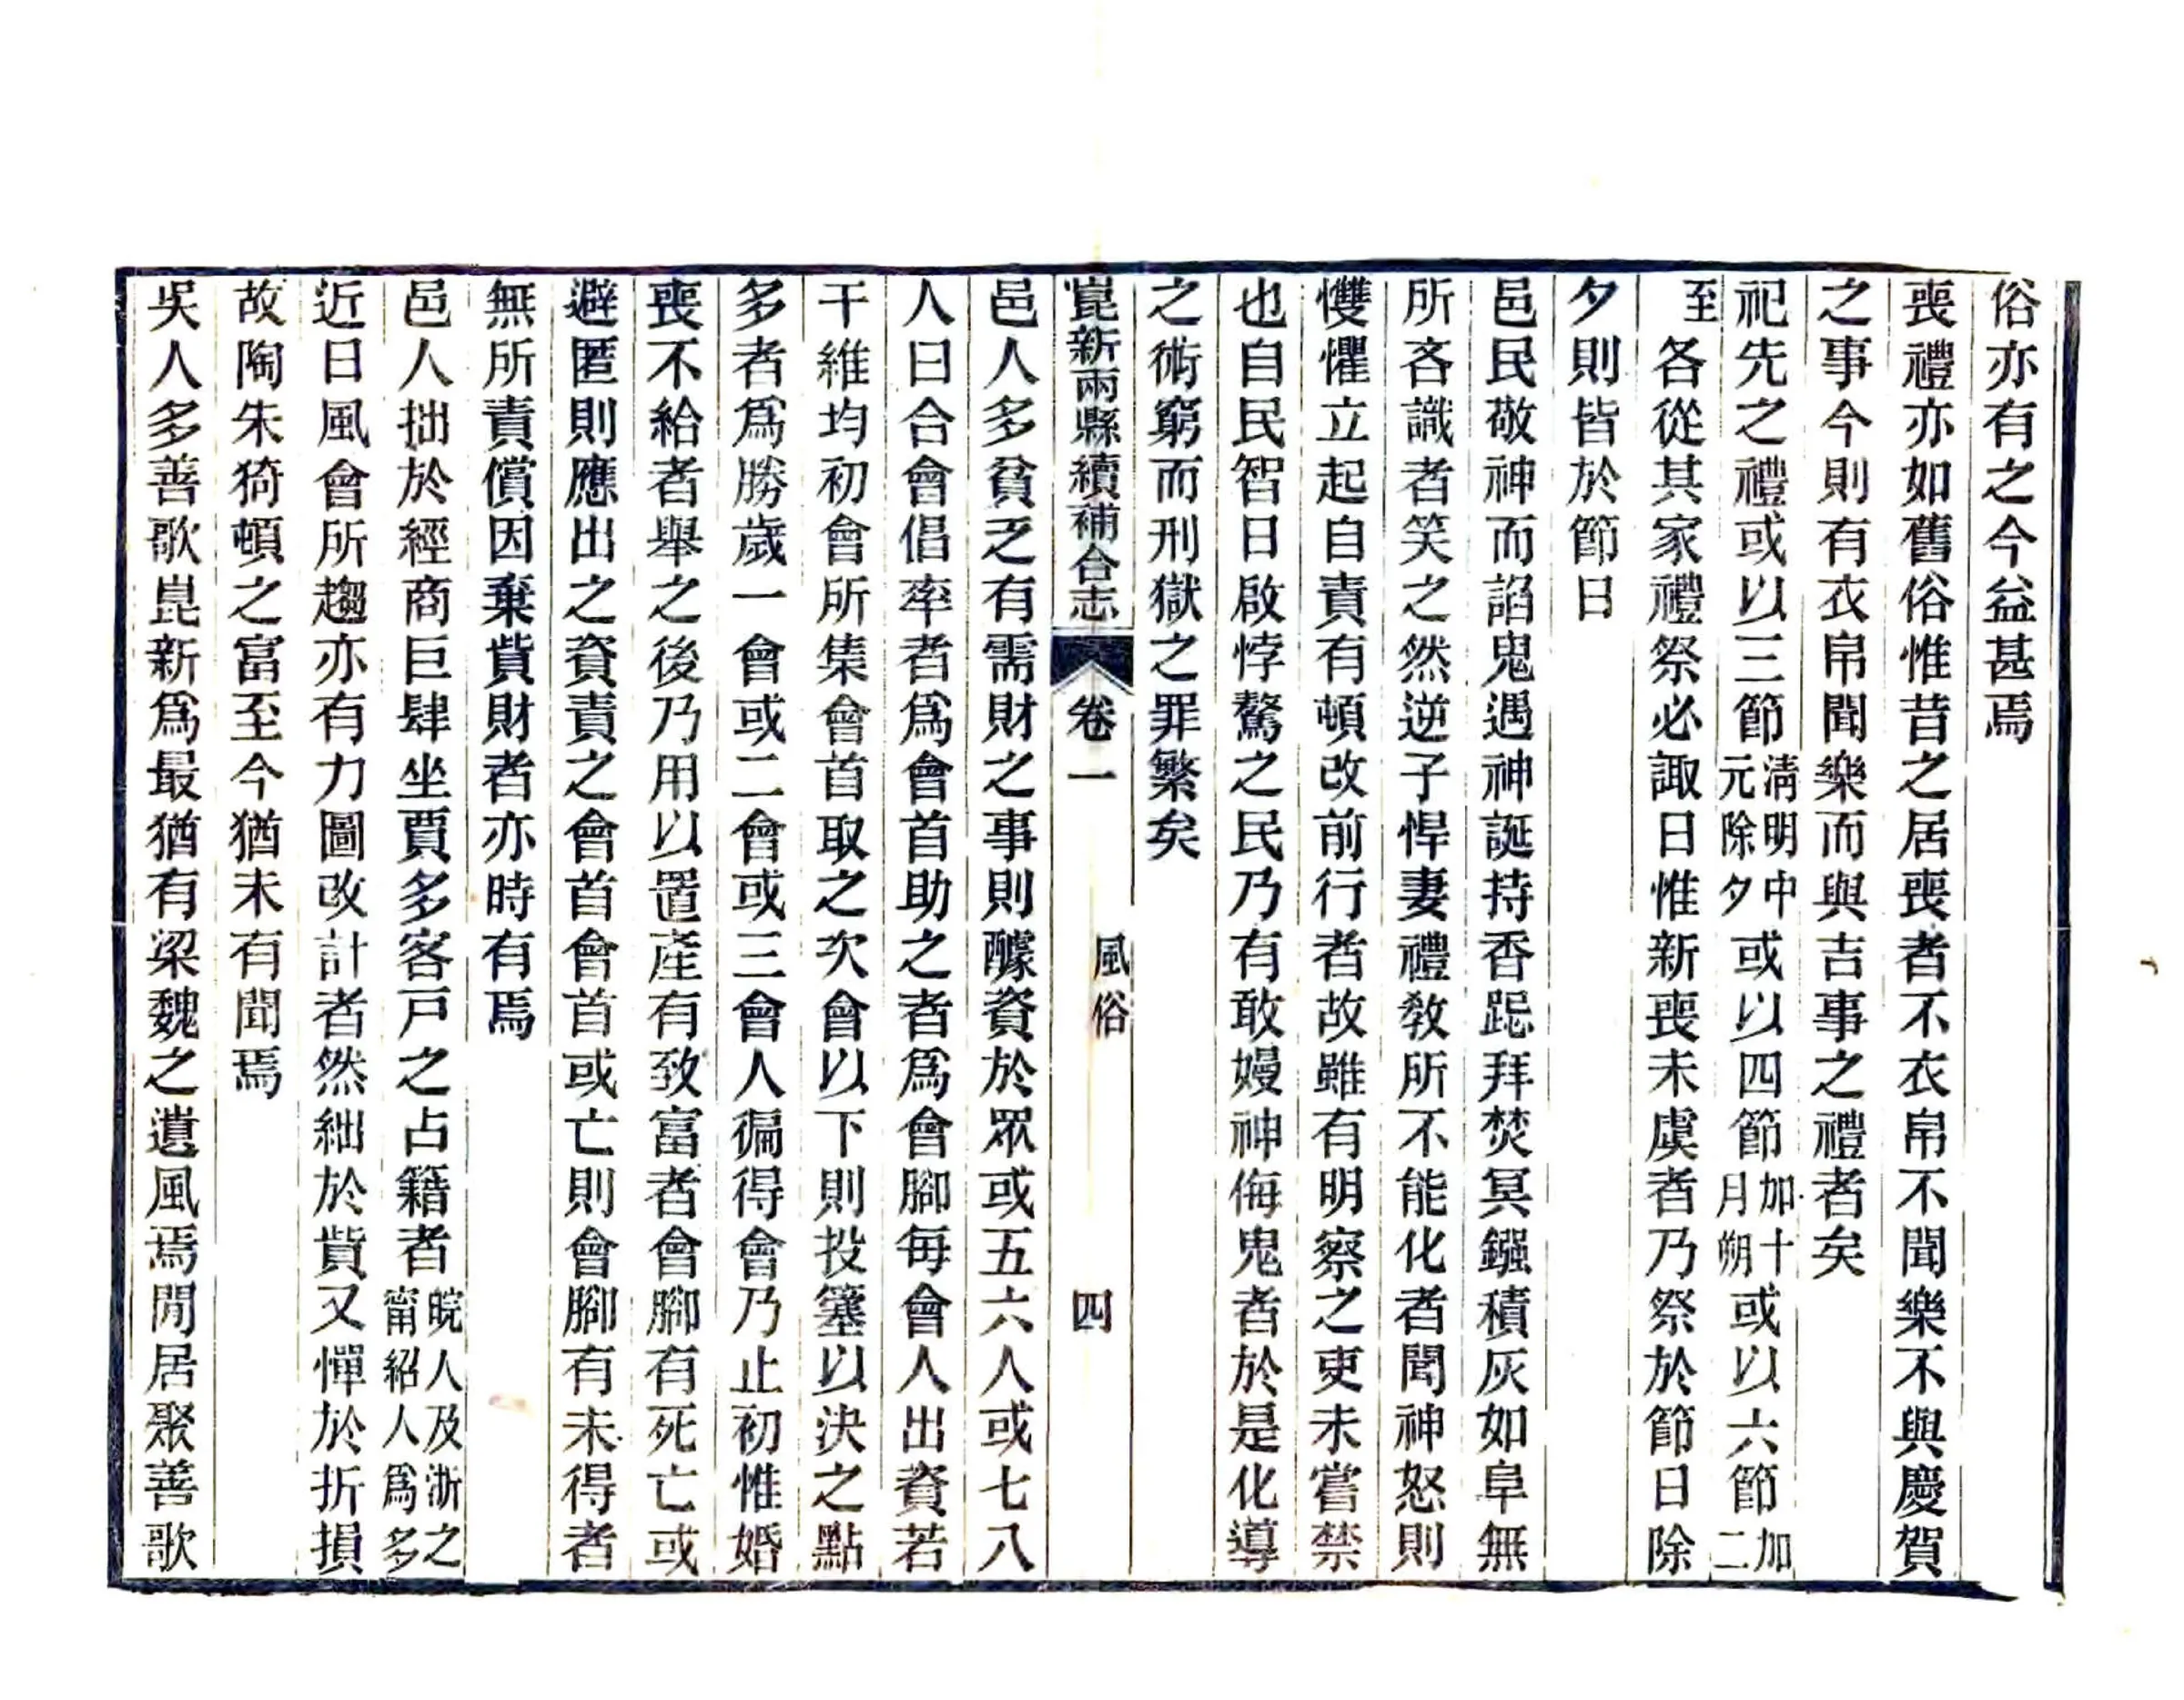 俗亦有之今益甚焉
喪禮亦如舊俗惟昔之居喪者不衣帛不聞樂不與慶賀
之事今則有衣帛聞樂而與吉事之禮者矣
祀先之禮或以三節清明中元除夕或以四節加十月朔或以六節加二
至各從其家禮祭必諏日惟新喪未虞者乃祭於節日除
夕則皆於節日
邑民敬神而諂鬼遇神誕持香跽拜焚冥鏹積灰如阜無
所吝識者笑之然逆子悍妻禮教所不能化者聞神怒則
戄懼立起自責有頓改前行者故雖有明察之吏未嘗禁
也自民智日啟悖驁之民乃有敢嫚神侮鬼者於是化導
之術窮而刑獄之罪繁矣
崑新兩縣續補合志 卷一 風俗 四
邑人多貧乏有需財之事則醵資於眾或五六人或七八
人曰合會倡率者為會首助之者為會腳每會人出資若
干維均初會所集會首取之次會以下則投簺以決之點
多者為勝歲一會或二會或三會人徧得會乃止初惟婚
喪不給者舉之後乃用以置產有致富者會腳有死亡或
避匿則應出之資責之會首會首或亡則會腳有未得者
無所責償因棄貲財者亦時有焉
邑人拙於經商巨肆坐賈多客戶之占籍者皖人及浙之甯紹人為多
近日風會所趨亦有力圖改計者然絀於貲又憚於折損
故陶朱猗頓之富至今猶未有聞焉
吳人多善歌崑新為最猶有梁魏之遺風焉閒居聚善歌